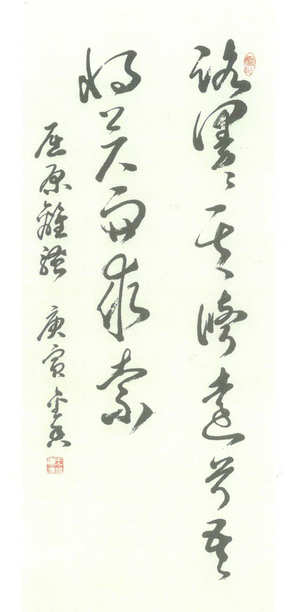 路漫〻其脩遠兮吾
將上下而求索
屈原離騷 庚寅